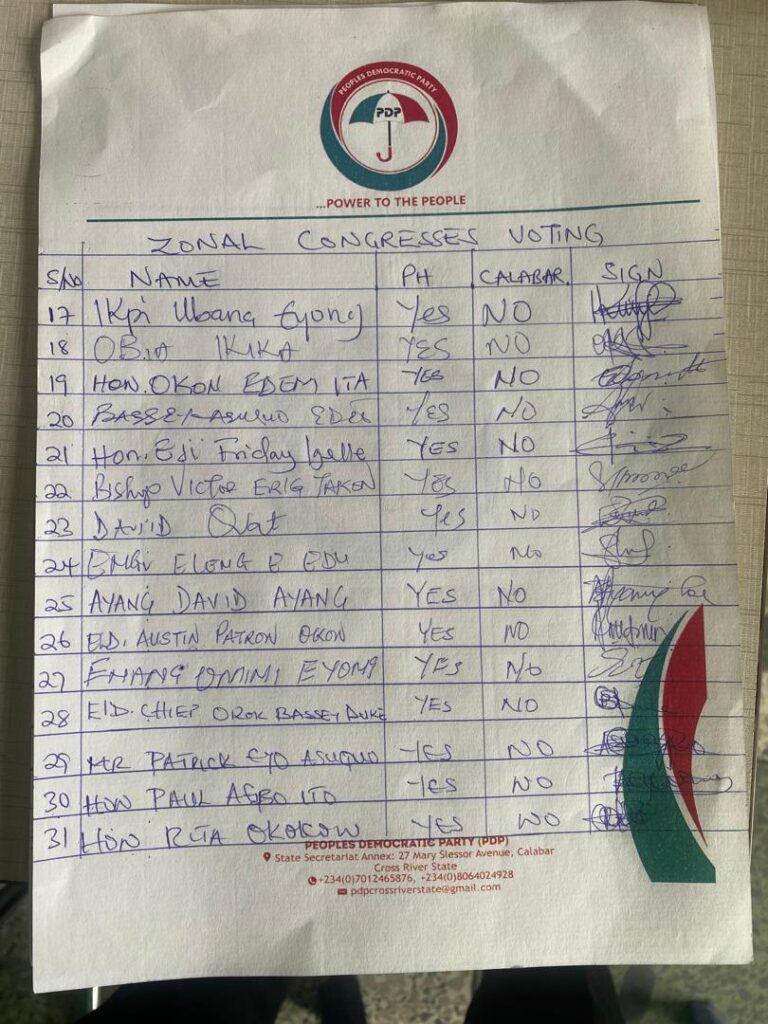 PEOPLES DEMOCRATIC PARTY
PDP
...POWER TO THE PEOPLE
ZONAL CONGRESSES VOTING
S/No NAME PH CALABAR. SIGN
17 IKpi Ubang Eyong Yes NO
18 OBIA IKIKA YES NO
19 HON. OKON EDEM ITA YES NO
20 BASSEY ASUQUO YES NO
21 Hon. Eji Friday YES NO
22 Bishop VICTOR YES NO
23 DAVIID Yes NO
24 ELONG E EDU Yes No
25 AYANG DAVID AYANG YES NO
26 ELD. AUSTIN PATRON OKON YES NO
27 EYONG YES No
28 ElD. CHIEF OROK BASSEY DUKE YES NO
29 MR PATRICK EYO ASUQUO YES NO
30 HON PAUL AGBO ITO YES NO
31 HON RITA OKOKOW YES NO
PEOPLES DEMOCRATIC PARTY (PDP)
State Secretariat Annex: 27 Mary Slessor Avenue, Calabar
Cross River State
+234(0)7012465876, +234(0)8064024928
pdpcrossriverstate@gmail.com